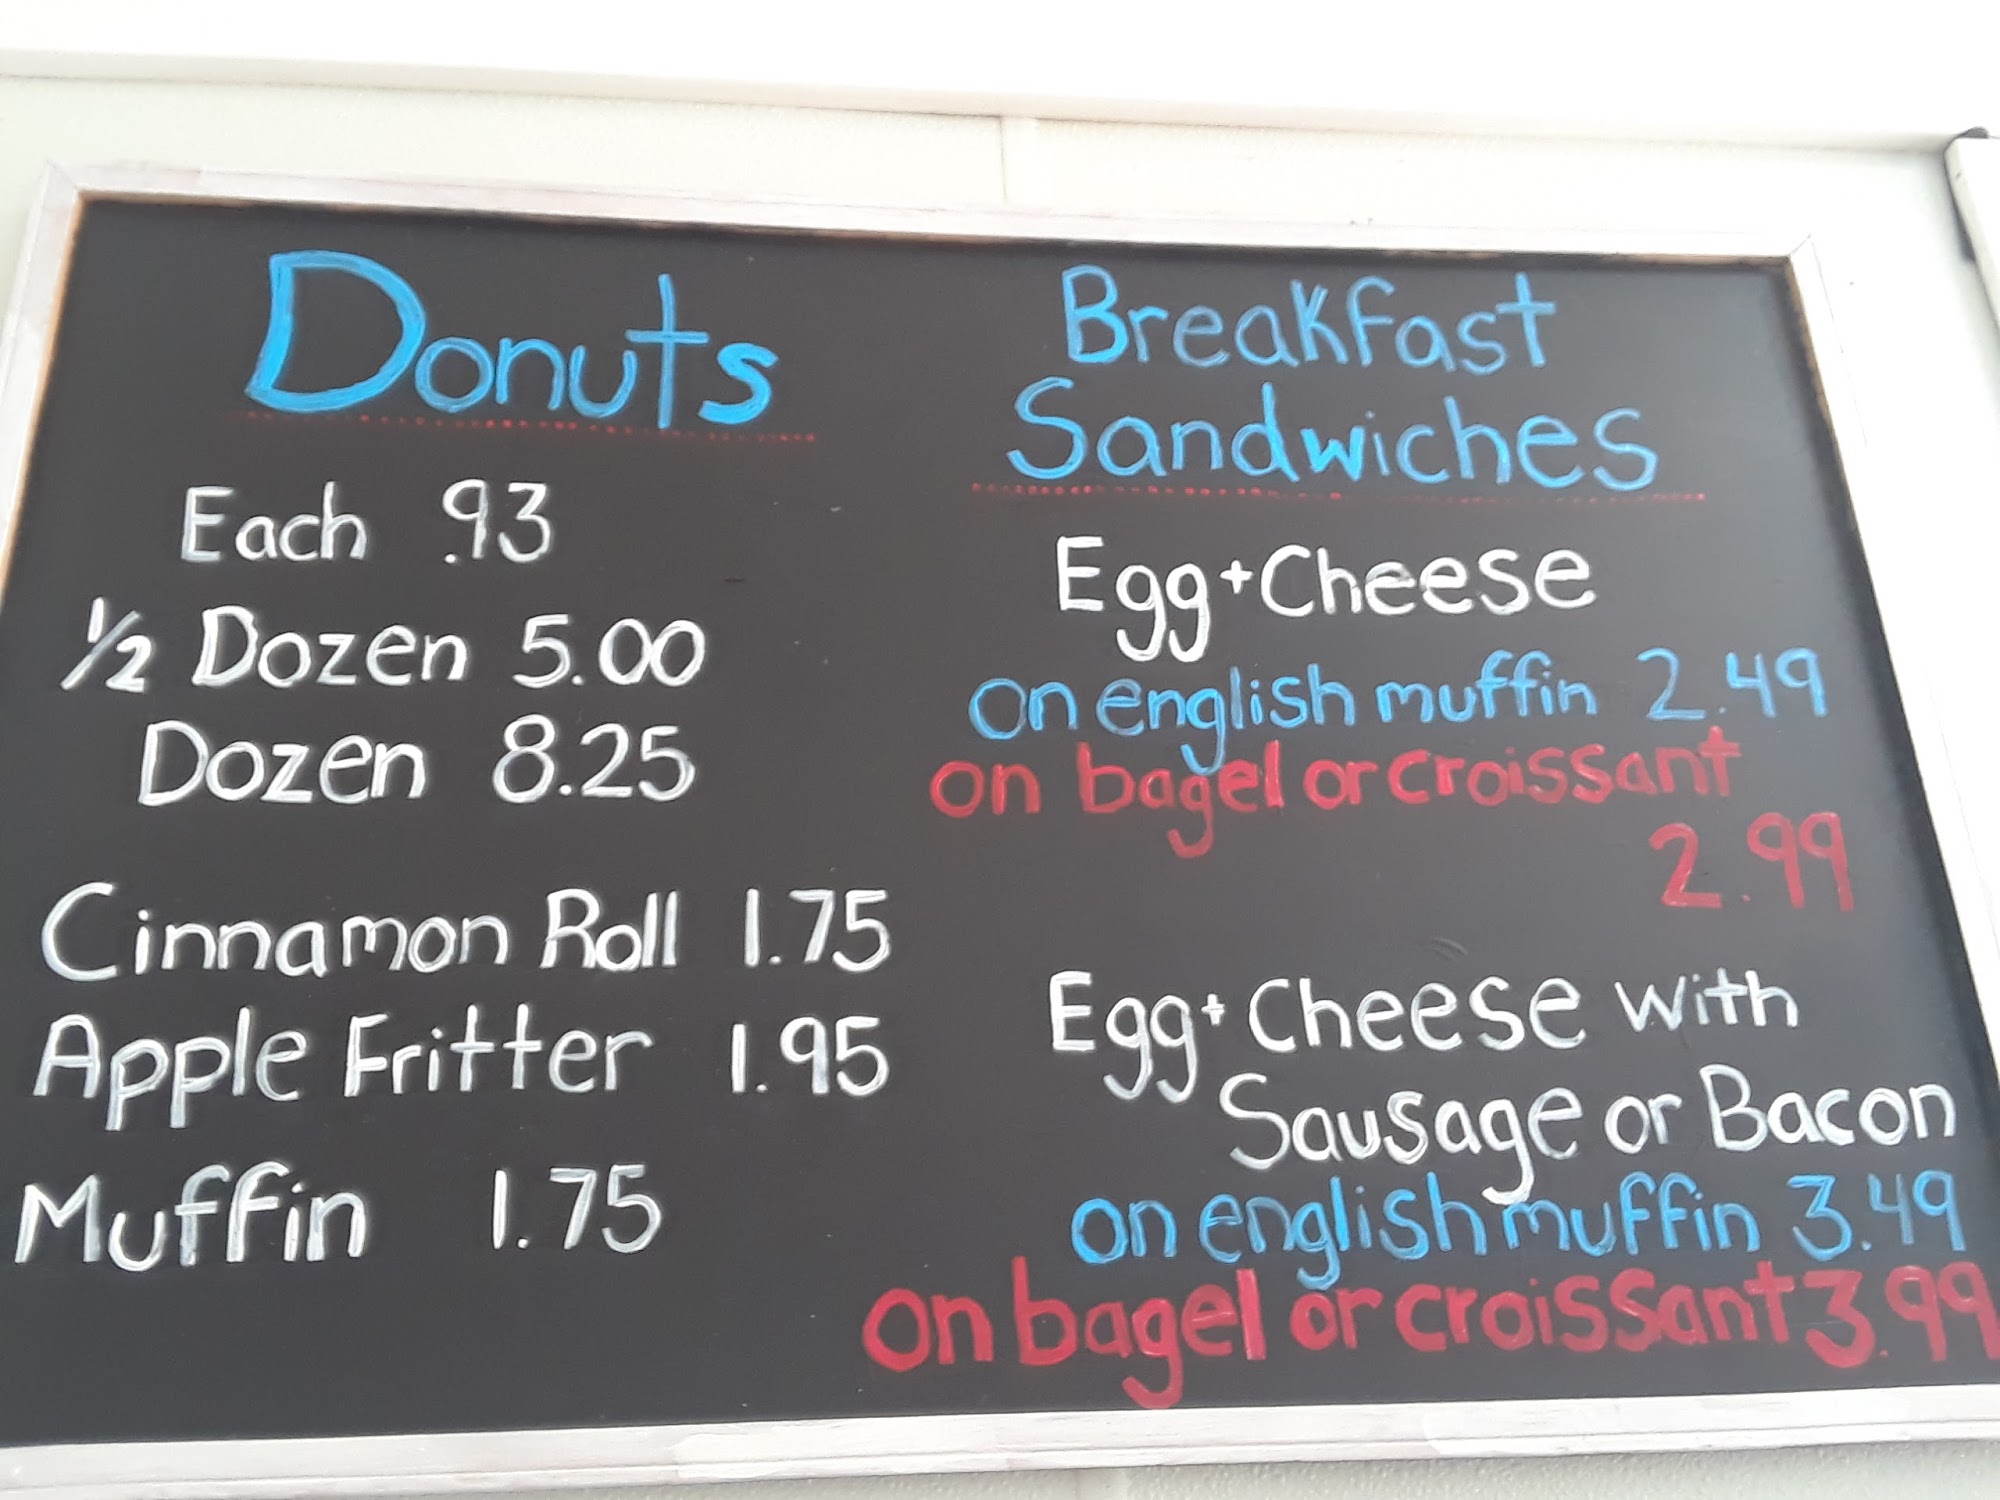 Donuts
Each .93
½ Dozen 5.00
Dozen 8.25
Cinnamon Roll 1.75
Apple Fritter 1.95
Muffin 1.75
Breakfast
Sandwiches
Egg+Cheese
on english muffin 2.49
on bagel or croissant
2.99
Egg+Cheese with
Sausage or Bacon
on english muffin 3.49
on bagel or croissant 3.99